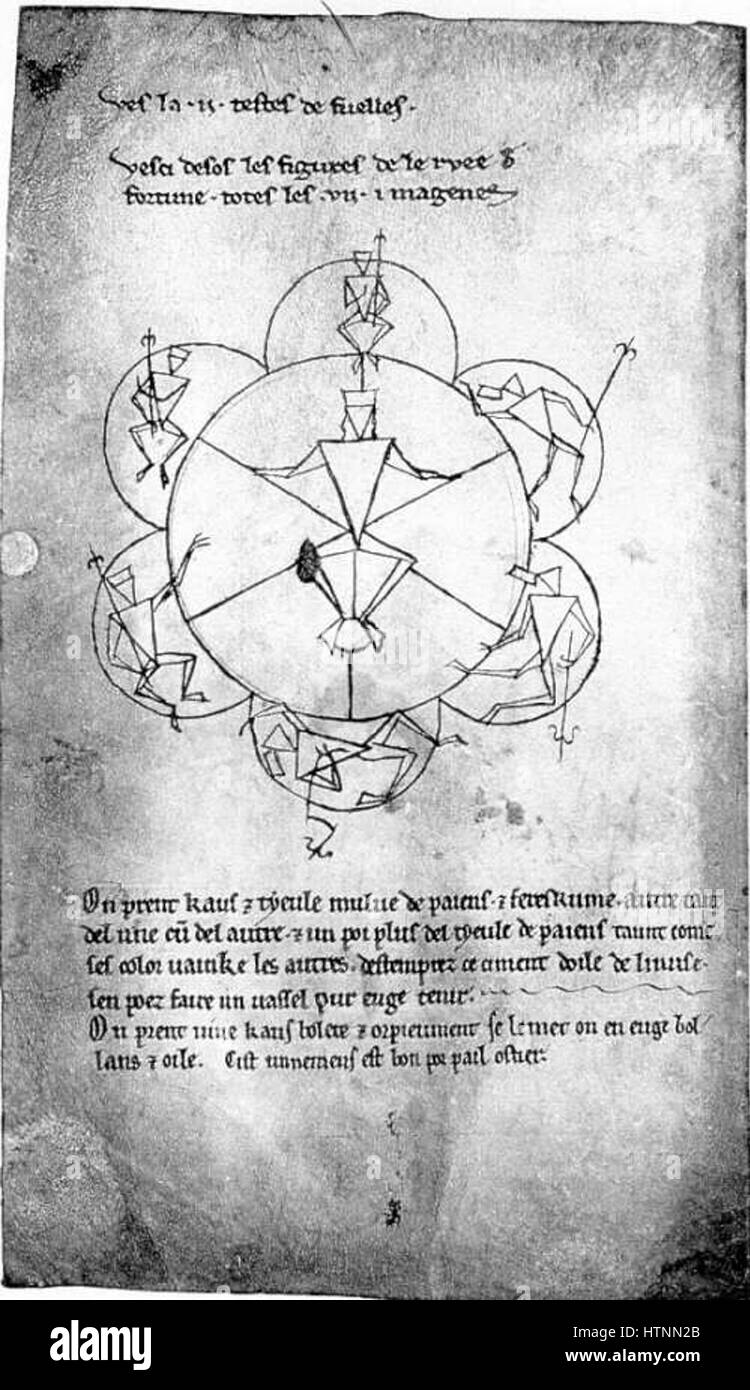 ves la .ii. testes de fuelles.
vesci desos les figures de le ruee d
fortune . totes les .vii. imagenes
On prent kaus ⁊ tyeule mulue de paiens . ⁊
del une cū del autre . ⁊ un poi plus del tyeule de paiens taunt come
ses color vainke les autres . destemprez ce ciment doile de linuse .
sen poez faire un vassel pur euge tenir .
On prent vive kaus bolete ⁊ orpieument se le met on en euge bol
lans ⁊ oile . Cist unnemens est bon por pail oster .
alamy
Image ID: HTNN2B
www.alamy.com